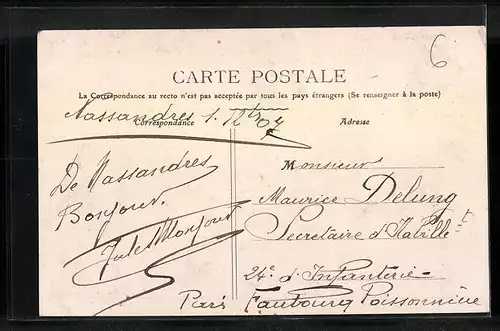 6
CARTE POSTALE
La Correspondance au recto n'est pas acceptée par tous les pays étrangers (Se renseigner à la poste)
Nassandres 1.
Correspondance
Adresse
De Nassandres
Bonjour.
Jules
Monsieur
Maurice Delung
Secretaire d'Habille^t
24e d'Infanterie
Paris Faubourg Poissonnière